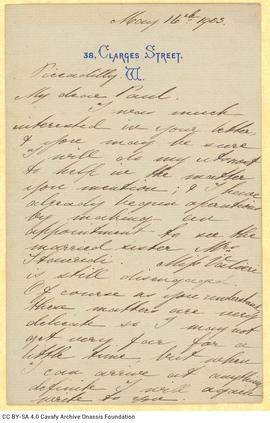 May 16th 1903
38, CLARGES STREET.
Piccadilly W.
My dear Paul.
I was much
interested in your letter
& you may be sure
I will do my utmost
to help in the matter
you mention; & I have
already begun operations
by making an
appointment to see the
married sister Mrs
Miss Valieri
is still disengaged.
Of course as you understand
these matters are very
delicate so I may not
get very far for a
little time, but when
I can arrive at anything
definite I will again
write to you.
CC BY-SA 4.0 Cavafy Archive Onassis Foundation